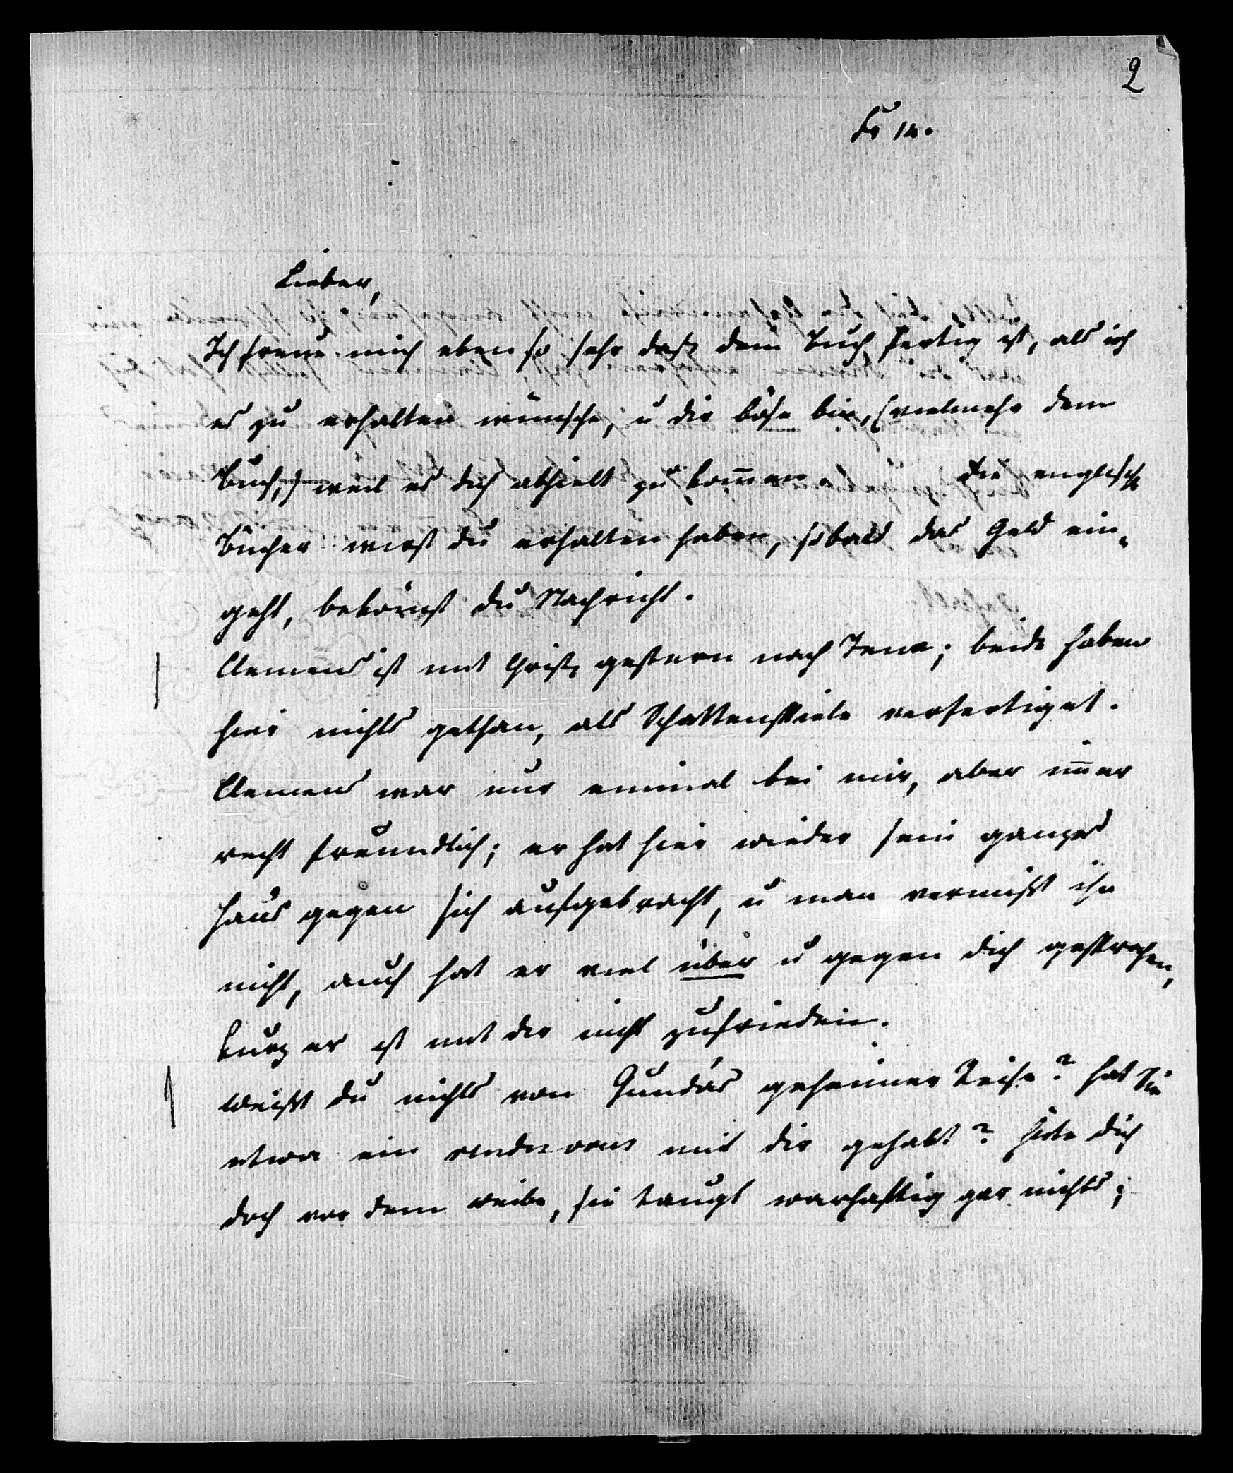 2
Fr 14.
Lieber,
Ich freue mich eben so sehr daß dein Buch fertig ist, als ich
es zu erhalten wünsche, u dir böse bin, (vielmehr dem
Buch,) weil es dich abhielt zu kom̅en. Die englisch
Bücher wirst du erhalten haben, sobald das Geld ein-
geht, bekom̅st du Nachricht.
Clemens ist mit gestern nach Jena; beide haben
hier nichts gethan, als Schattenspiele verfertiget.
Clemens war nur einmal bei mir, aber im̅er
recht freundlich; er hat hier wieder sein ganzes
Haus gegen sich aufgebracht, u man vermißt ihn
nicht, auch hat er viel über u gegen dich gesprochen,
kurz er ist mit dir nicht zufrieden.
Weißt du nichts von Gundas geheimer Reise? hat Sie
etwa ein rendevous mit dir gehabt? hüte dich
doch vor dem Weibe, sie taugt warhaftig gar nichts;